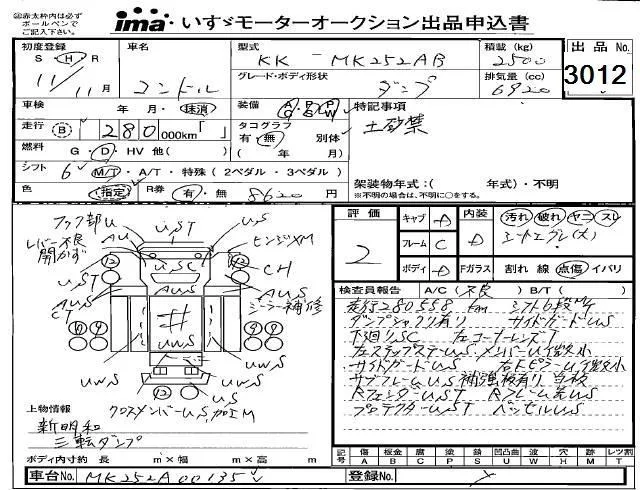 ㊟赤太枠内は必ず
ボールペンで
ご記入下さい。
ima・いすゞモーターオークション出品申込書
初度登録 車名 型式 積載 (kg) 出品 No.
S・H・R 11/11月 コンドル KK-MK252AB 2500 3013
グレード・ボディ形状 ダンプ 排気量 (cc) 6920
車検 年・月・抹消 装備 AC PS PW 特記事項
走行 B 280 000km「 」 タコグラフ 有・無 別体 土砂禁
燃料 G・D・HV 他( ) ( 年 月)
シフト 6 M/T・A/T・特殊 (2ペダル・3ペダル) 架装物年式:( 年式)・不明
色 (指定) R券 有・無 8620 円 ※不明の場合は、不明に○をする。
フック部U UST US
レバー不良 AU ヒンジXM
開かず USC
UST AUS CH
AUS AUS シーラー補修
CT US
UWS UWS
UWS UWS
クロスメンバーUS、加工M
上物情報
新明和
三転ダンプ
ボディ内寸約 長 m×幅 m×高 m
評価 2
キャブ A 内装 D 汚れ 破れ ヤニ スレ
フレーム C シートエグレ(大)
ボディ D Fガラス 割れ 線 点傷 イバリ
検査員報告 A/C(不良) B/T( )
走行280558km シフト6段MT
ダンプシャクリ有り サイドガードUS
下廻りSC 左コーナーレンズ
左ステップステーUS メンバーU微少
サイドガードUS 右ドピラーU微少
サブフレームUS 補強板有り
RフェンダーUST Rフレーム先US
プロテクターUST ベッセルUS
記号 傷 板金 腐 塗 錆 凹 凸曲 補 穴 跡 レツ割
A B C P S U W H M T
車台No. MK252A00135 登録No.